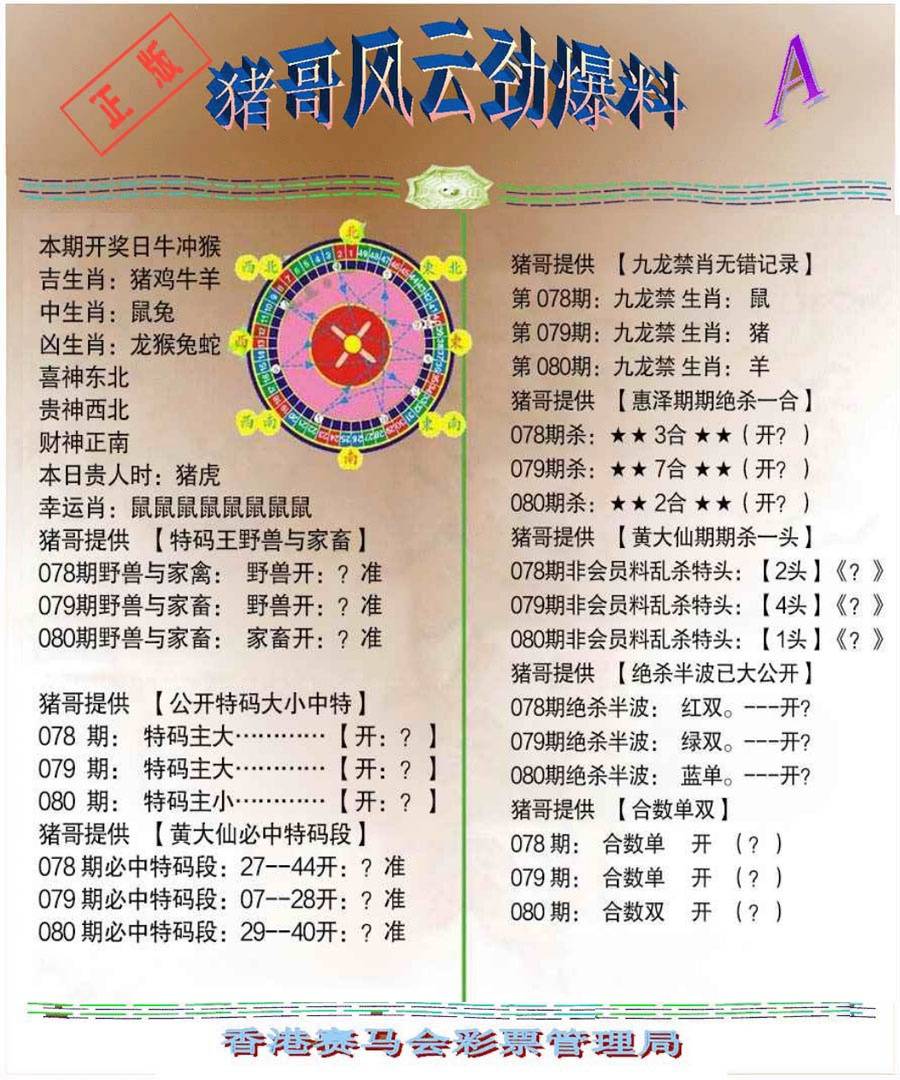 正版
猪哥风云劲爆料
A
本期开奖日牛冲猴
吉生肖：猪鸡牛羊
中生肖：鼠兔
凶生肖：龙猴兔蛇
喜神东北
贵神西北
财神正南
本日贵人时：猪虎
幸运肖：鼠鼠鼠鼠鼠鼠鼠鼠
猪哥提供 【特码王野兽与家畜】
078期野兽与家禽： 野兽开：？准
079期野兽与家畜： 野兽开：？准
080期野兽与家畜： 家畜开：？准
猪哥提供 【公开特码大小中特】
078 期： 特码主大…………【开：？】
079 期： 特码主大…………【开：？】
080 期： 特码主小…………【开：？】
猪哥提供 【黄大仙必中特码段】
078 期必中特码段：27--44开：？准
079 期必中特码段：07--28开：？准
080 期必中特码段：29--40开：？准
北
西北
東北
西
東
西南
東南
南
猪哥提供 【九龙禁肖无错记录】
第 078期：九龙禁 生肖： 鼠
第 079期：九龙禁 生肖： 猪
第 080期：九龙禁 生肖： 羊
猪哥提供 【惠泽期期绝杀一合】
078期杀：★★ 3合 ★★（开？）
079期杀：★★ 7合 ★★（开？）
080期杀：★★ 2合 ★★（开？）
猪哥提供 【黄大仙期期杀一头】
078期非会员料乱杀特头：【2头】《？》
079期非会员料乱杀特头：【4头】《？》
080期非会员料乱杀特头：【1头】《？》
猪哥提供 【绝杀半波已大公开】
078期绝杀半波： 红双。---开?
079期绝杀半波： 绿双。---开?
080期绝杀半波： 蓝单。---开?
猪哥提供 【合数单双】
078 期： 合数单 开 （？）
079 期： 合数单 开 （？）
080 期： 合数双 开 （？）
香港赛马会彩票管理局